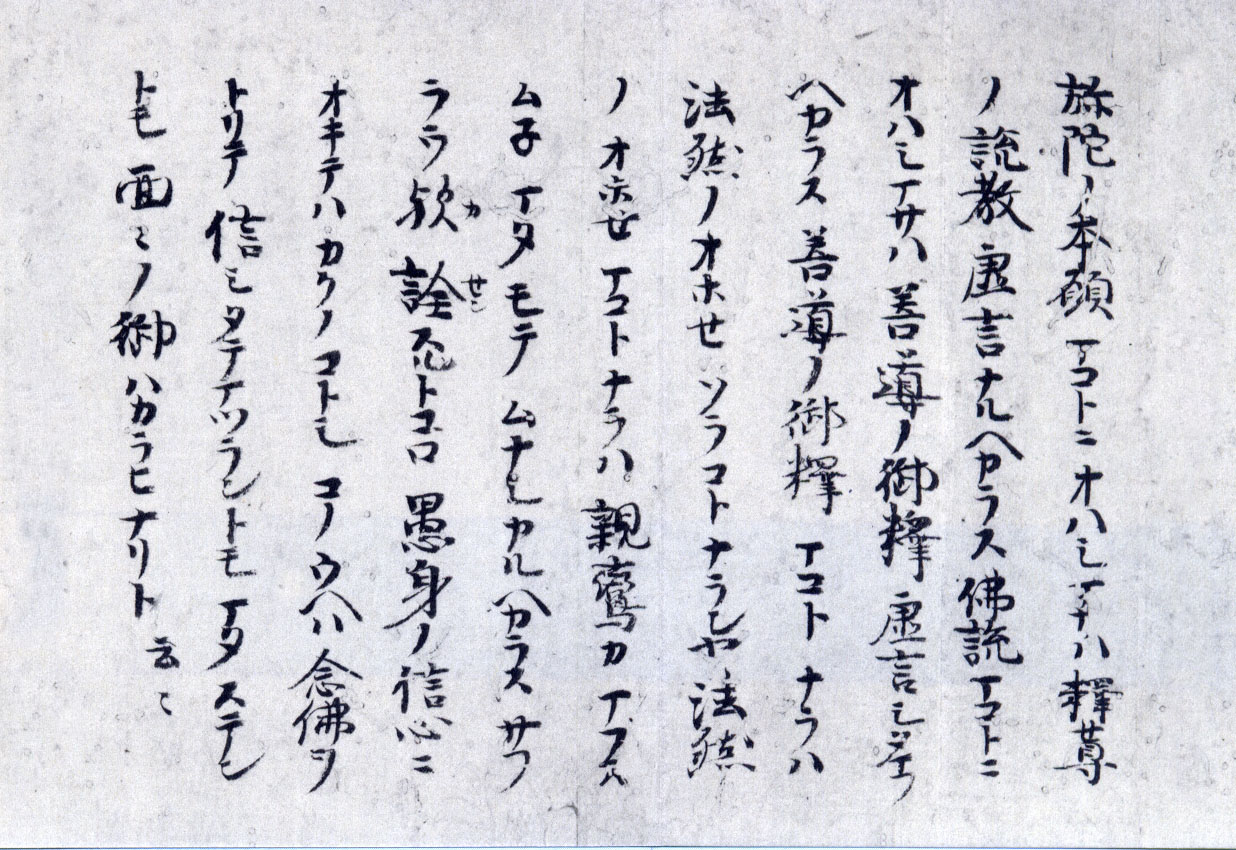 弥陀ノ本願マコトニオハシマサハ釋尊
ノ説教虚言ナルヘカラス佛説マコトニ
オハシマサハ善導ノ御釋虚言シタマフ
ヘカラス善導ノ御釋マコトナラハ
法然ノオホセソラコトナランヤ法然
ノオホセマコトナラハ親鸞カマフス
ムネマタモテムナシカルヘカラスサフ
ラフ歟カ詮センスルトコロ愚身ノ信心ニ
オキテハカクノコトシコノウヘハ念佛ヲ
トリテ信シタテマツラントモマタステン
トモ面々ノ御ハカラヒナリト云々